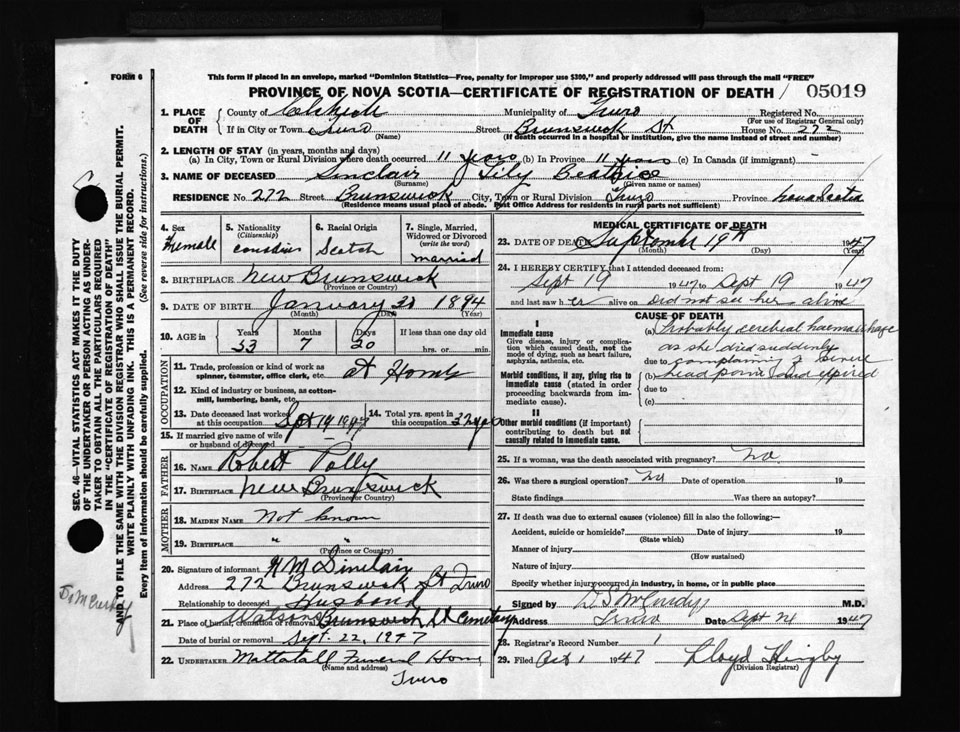 FORM 6
This form if placed in an envelope, marked "Dominion Statistics—Free, penalty for improper use $300," and properly addressed will pass through the mail "FREE"
PROVINCE OF NOVA SCOTIA—CERTIFICATE OF REGISTRATION OF DEATH / 05019
1. PLACE OF DEATH County of Colchester Municipality of Truro Registered No.
(For use of Registrar General only)
If in City or Town Truro Street Brunswick St House No. 272
(Name) (If death occurred in a hospital or institution, give the name instead of street and number)
2. LENGTH OF STAY (in years, months and days)
(a) In City, Town or Rural Division where death occurred 11 years (b) In Province 11 years (c) In Canada (if immigrant) -
3. NAME OF DECEASED Sinclair Lily Beatrice
(Surname) (Given name or names)
RESIDENCE No. 272 Street Brunswick City, Town or Rural Division Truro Province Nova Scotia
(Residence means usual place of abode. Post Office Address for residents in rural parts not sufficient)
4. Sex Female
5. Nationality (Citizenship) Canadian
6. Racial Origin Scotch
7. Single, Married, Widowed or Divorced (write the word) married
8. BIRTHPLACE New Brunswick
(Province or Country)
9. DATE OF BIRTH January 1894
(Month) (Day) (Year)
10. AGE in Years Months Days If less than one day old
53 7 20 hrs. or min.
OCCUPATION
11. Trade, profession or kind of work as spinner, teamster, office clerk, etc. At Home
12. Kind of industry or business, as cotton-mill, lumbering, bank, etc.
13. Date deceased last worked at this occupation Sept 19 1947
14. Total yrs. spent in this occupation 32 years
15. If married give name of wife or husband of deceased
FATHER
16. NAME Robert Polly
17. BIRTHPLACE New Brunswick
(Province or Country)
MOTHER
18. MAIDEN NAME Not known
19. BIRTHPLACE " "
(Province or Country)
20. Signature of informant H M Sinclair
Address 272 Brunswick St Truro
Relationship to deceased Husband
21. Place of burial, cremation or removal Watson Brunswick St Cemetery
Date of burial or removal Sept. 22, 1947
22. UNDERTAKER Mattatall Funeral Home
(Name and address)
Truro
MEDICAL CERTIFICATE OF DEATH
23. DATE OF DEATH September 19th 1947
(Month) (Day) (Year)
24. I HEREBY CERTIFY that I attended deceased from:
Sept 19 1947 to Sept 19 1947
and last saw her alive on did not see her alive
CAUSE OF DEATH
I
Immediate cause
Give disease, injury or complication which caused death, not the mode of dying, such as heart failure, asphyxia, asthenia, etc.
(a) Probably cerebral haemorrhage
as she died suddenly
due to complaining of severe
Morbid conditions, if any, giving rise to immediate cause (stated in order proceeding backwards from immediate cause).
(b) head pain and expired
due to
(c)
II
Other morbid conditions (if important) contributing to death but not causally related to immediate cause.
25. If a woman, was the death associated with pregnancy? No
26. Was there a surgical operation? No Date of operation 19
State findings Was there an autopsy?
27. If death was due to external causes (violence) fill in also the following:—
Accident, suicide or homicide? Date of injury 19
(State which)
Manner of injury
(How sustained)
Nature of injury
Specify whether injury occurred in industry, in home, or in public place
Signed by D S McCurdy M.D.
Address Truro Date Sept 1947
28. Registrar's Record Number 1
29. Filed Oct 1 1947 Lloyd
(Division Registrar)
SEC. 46—VITAL STATISTICS ACT MAKES IT THE DUTY
OF THE UNDERTAKER OR PERSON ACTING AS UNDER-
TAKER TO OBTAIN ALL THE PARTICULARS REQUIRED
IN THE "CERTIFICATE OF REGISTRATION OF DEATH"
AND TO FILE THE SAME WITH THE DIVISION REGISTRAR WHO SHALL ISSUE THE BURIAL PERMIT.
WRITE PLAINLY WITH UNFADING INK. THIS IS A PERMANENT RECORD.
Every item of information should be carefully supplied. (See reverse side for instructions.)